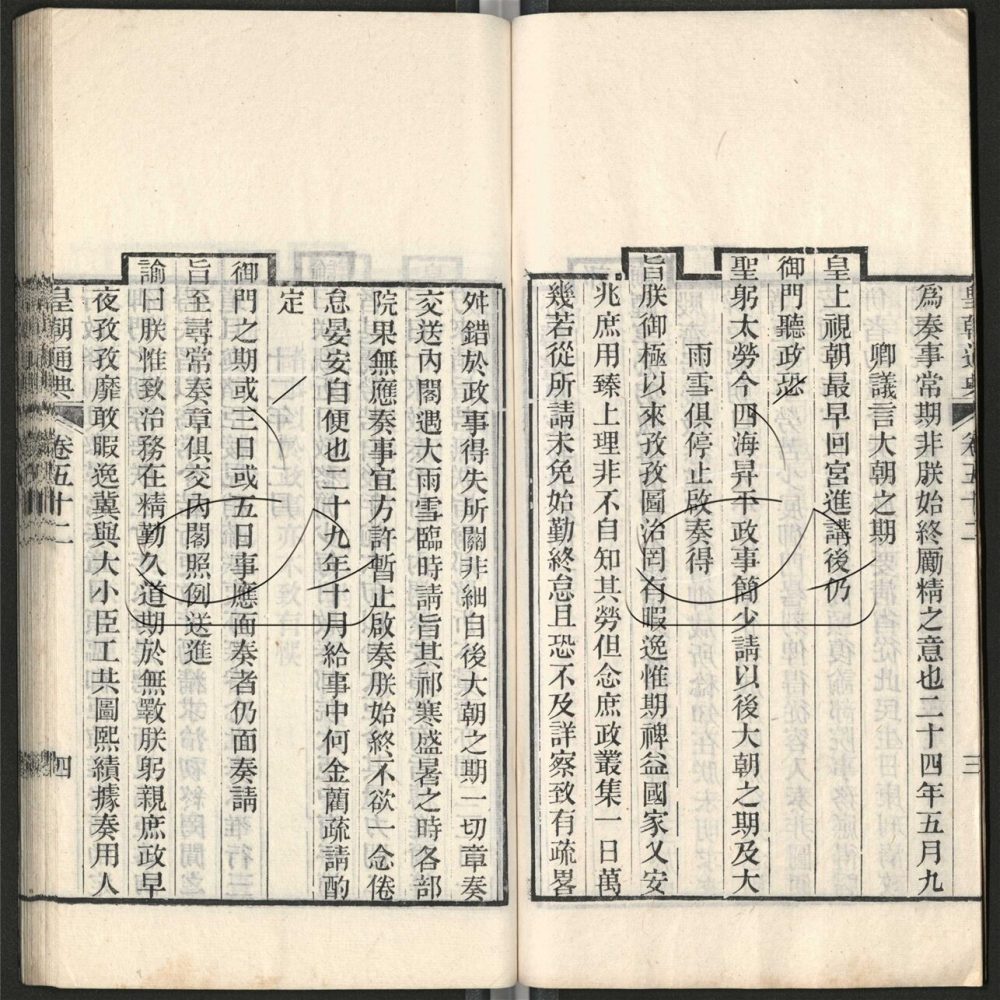 皇朝通典 卷五十二 三
爲奏事常期非朕始終厲精之意也二十四年五月九
卿議言大朝之期
皇上視朝最早回宮進講後仍
御門聽政恐
聖躬太勞今四海昇平政事簡少請以後大朝之期及大
雨雪俱停止啟奏得
旨朕御極以來孜孜圖治罔有暇逸惟期裨益國家乂安
兆庶用臻上理非不自知其勞但念庶政叢集一日萬
幾若從所請未免始勤終怠且恐不及詳察致有疏畧
舛錯於政事得失所關非細自後大朝之期一切章奏
交送內閣遇大雨雪臨時請旨其祁寒盛暑之時各部
院果無應奏事宜方許暫止啟奏朕始終不欲一念倦
怠晏安自便也二十九年十月給事中何金藺疏請酌
定
御門之期或三日或五日事應面奏者仍面奏請
旨至尋常奏章俱交內閣照例送進
諭曰朕惟致治務在精勤久道期於無斁朕躬親庶政早
夜孜孜靡敢暇逸冀與大小臣工共圖熙績據奏用人
皇朝通典 卷五十二 四